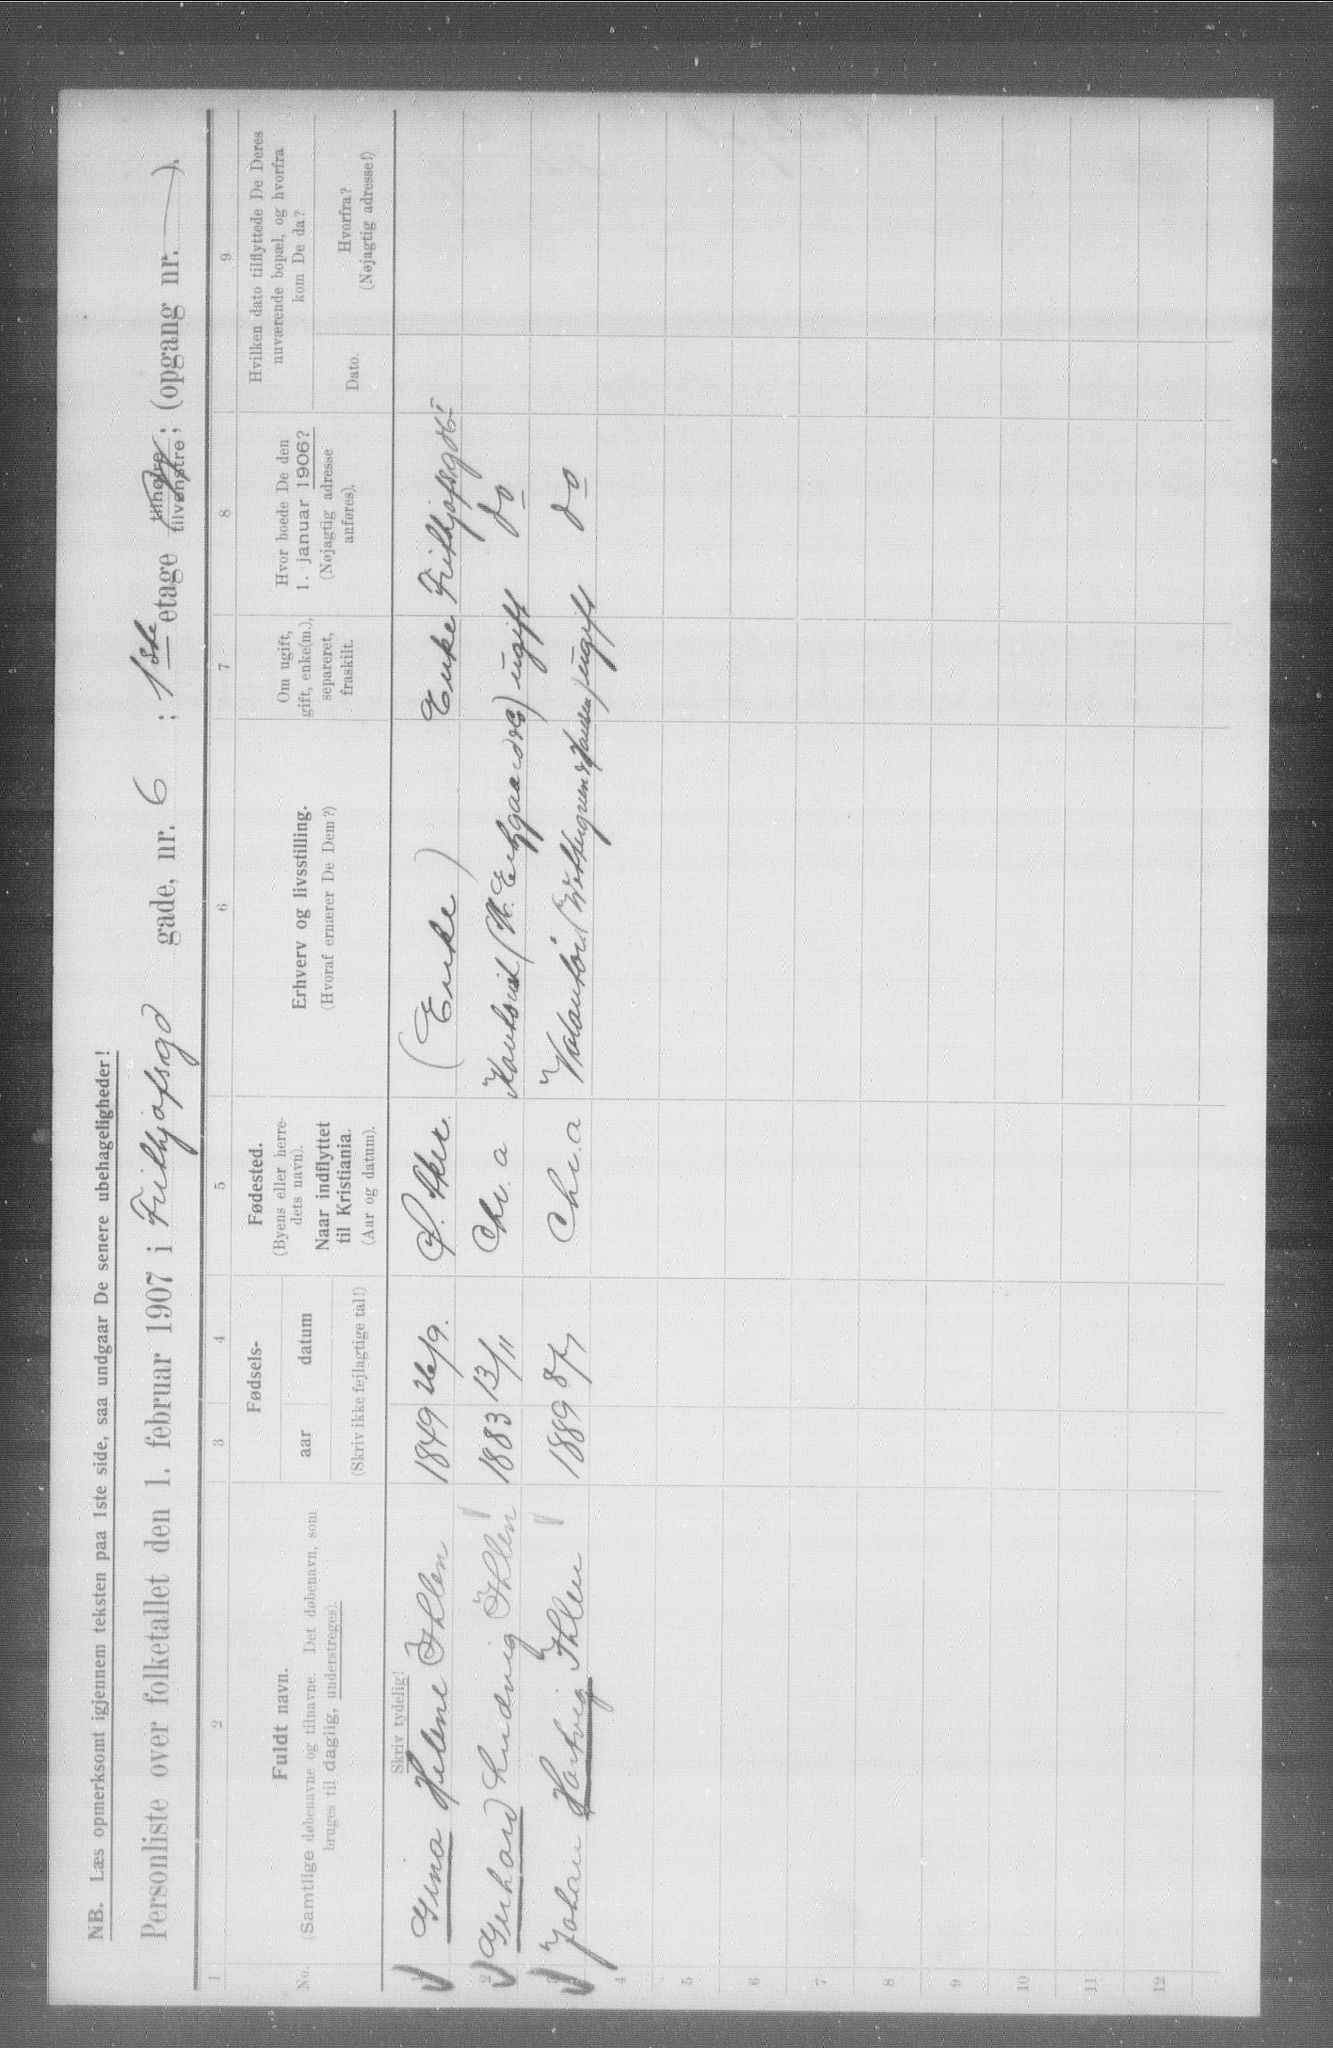 NB. Læs opmerksomt igjennem teksten paa 1ste side, saa undgaar De senere ubehageligheder!
Personliste over folketallet den 1. februar 1907 i Frithjofsgd gade, nr. 6 ; 1ste etage tilhøire tilvenstre ; (opgang nr. — ).
1 2 3 4 5 6 7 8 9
No.
Fuldt navn.
(Samtlige døbenavne og tilnavne. Det døbenavn, som
bruges til daglig, understreges).
Fødsels-
aar datum
(Skriv ikke fejlagtige tal!)
Fødested.
(Byens eller herre-
dets navn).
Naar indflyttet
til Kristiania.
(Aar og datum).
Erhverv og livsstilling.
(Hvoraf ernærer De Dem?)
Om ugift,
gift, enke(m.),
separeret,
fraskilt.
Hvor boede De den
1. januar 1906?
(Nøjagtig adresse
anføres).
Hvilken dato tilflyttede De Deres
nuværende bopæl, og hvorfra
kom De da?
Dato.
Hvorfra?
(Nøjagtig adresse!)
Skriv tydelig!
1 Gina Helene Ihlen 1849 26/9. Ø. Aker. (Enke) Enke Frithjofsgd 6
2 Gerhard Ludvig Ihlen 1883 13/11 Chr.a ugift do
3 Johan Hartvig Ihlen 1889 8/7 Chr.a ugift do
4
5
6
7
8
9
10
11
12